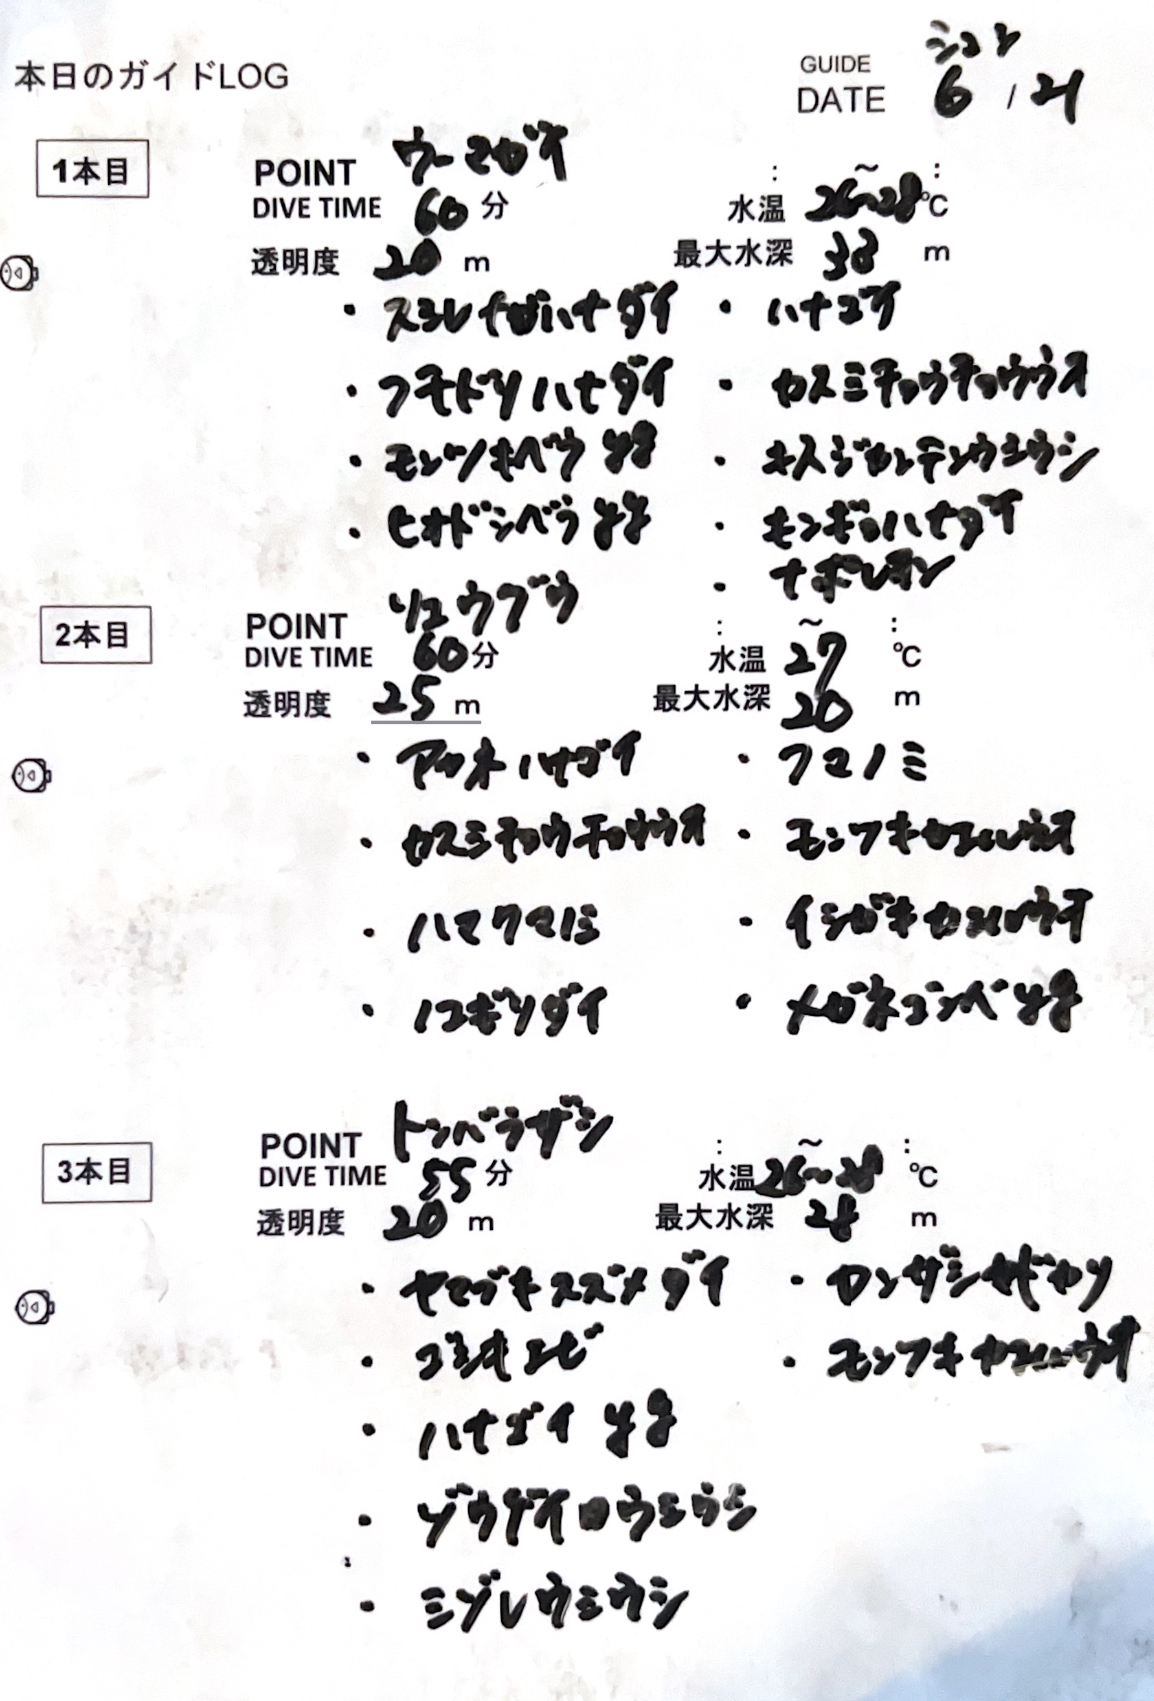 シュン
本日のガイドLOG
GUIDE
DATE 6 / 21
1本目
POINT ウーマガイ
DIVE TIME 60 分
: ～ :
水温 26~28℃
透明度 20 m
最大水深 33 m
・スミレナガハナダイ ・ハナゴイ
・フチドリハナダイ ・カスミチョウチョウウオ
・モンツキベラ yg ・キスジカンテンウミウシ
・ヒオドシベラ yg ・キンギョハナダイ
・ナポレオン
2本目
POINT リュウグウ
DIVE TIME 60分
: ～ :
水温 27 ℃
透明度 25 m
最大水深 20 m
・アカネハナゴイ ・クマノミ
・カスミチョウチョウウオ ・モンツキカエルウオ
・ハマクマノミ ・イシガキカエルウオ
・ノコギリダイ ・メガネゴンベ yg
3本目
POINT トンバラザシ
DIVE TIME 55 分
: ～ :
水温26~28 ℃
透明度 20 m
最大水深 24 m
・ヤマブキスズメダイ ・カンザシヤドカリ
・ゴシキエビ ・モンツキカエルウオ
・ハナゴイ yg
・ゾウゲイロウミウシ
・ミゾレウミウシ